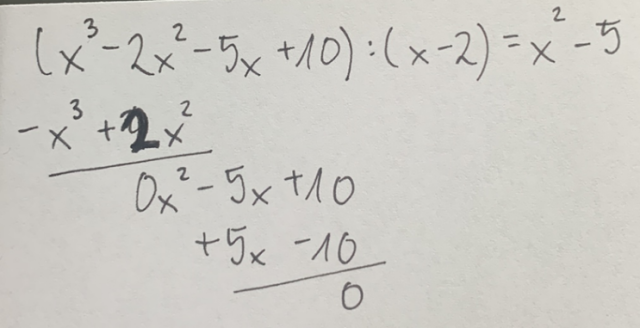 (x³ - 2x² - 5x + 10) : (x - 2) = x² - 5
- x³ + 2x²
0x² - 5x + 10
+ 5x - 10
0